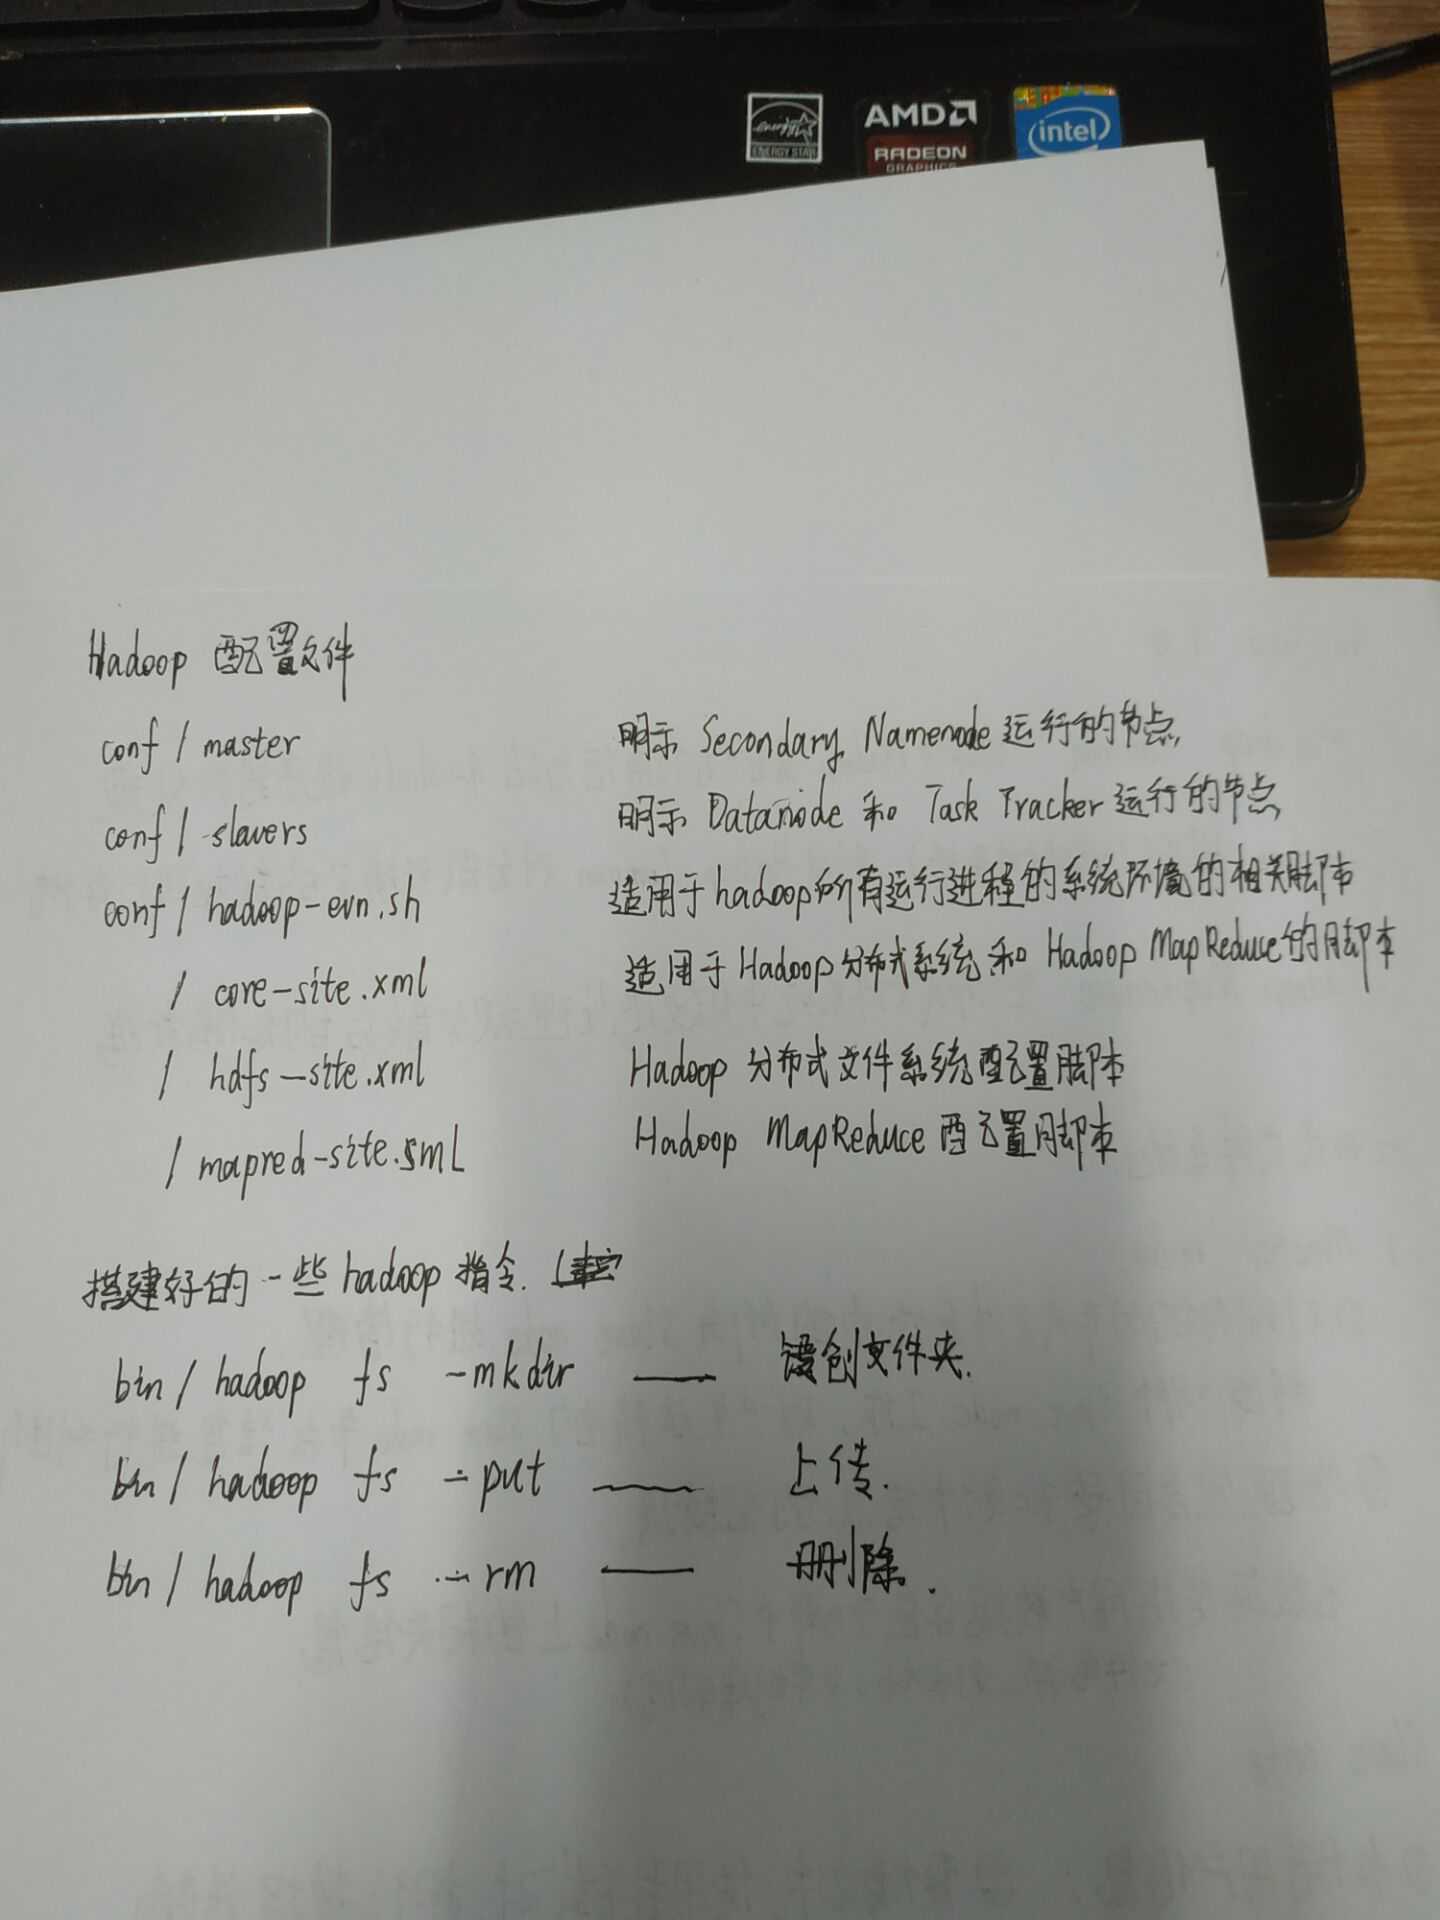 ENERGY STAR
AMD
RADEON
GRAPHICS
intel
Hadoop 配置文件
conf / master 明示 Secondary Namenode 运行的节点
conf / slavers 明示 Datanode 和 Task Tracker 运行的节点
conf / hadoop-evn.sh 适用于hadoop所有运行进程的系统环境的相关脚本
/ core-site.xml 适用于Hadoop分布式系统和 Hadoop MapReduce的脚本
/ hdfs-site.xml Hadoop 分布式文件系统配置脚本
/ mapred-site.sml Hadoop MapReduce 配置脚本
搭建好的一些hadoop指令.
bin / hadoop fs -mkdir —— 创文件夹.
bin / hadoop fs -put —— 上传.
bin / hadoop fs -rm —— 删除.